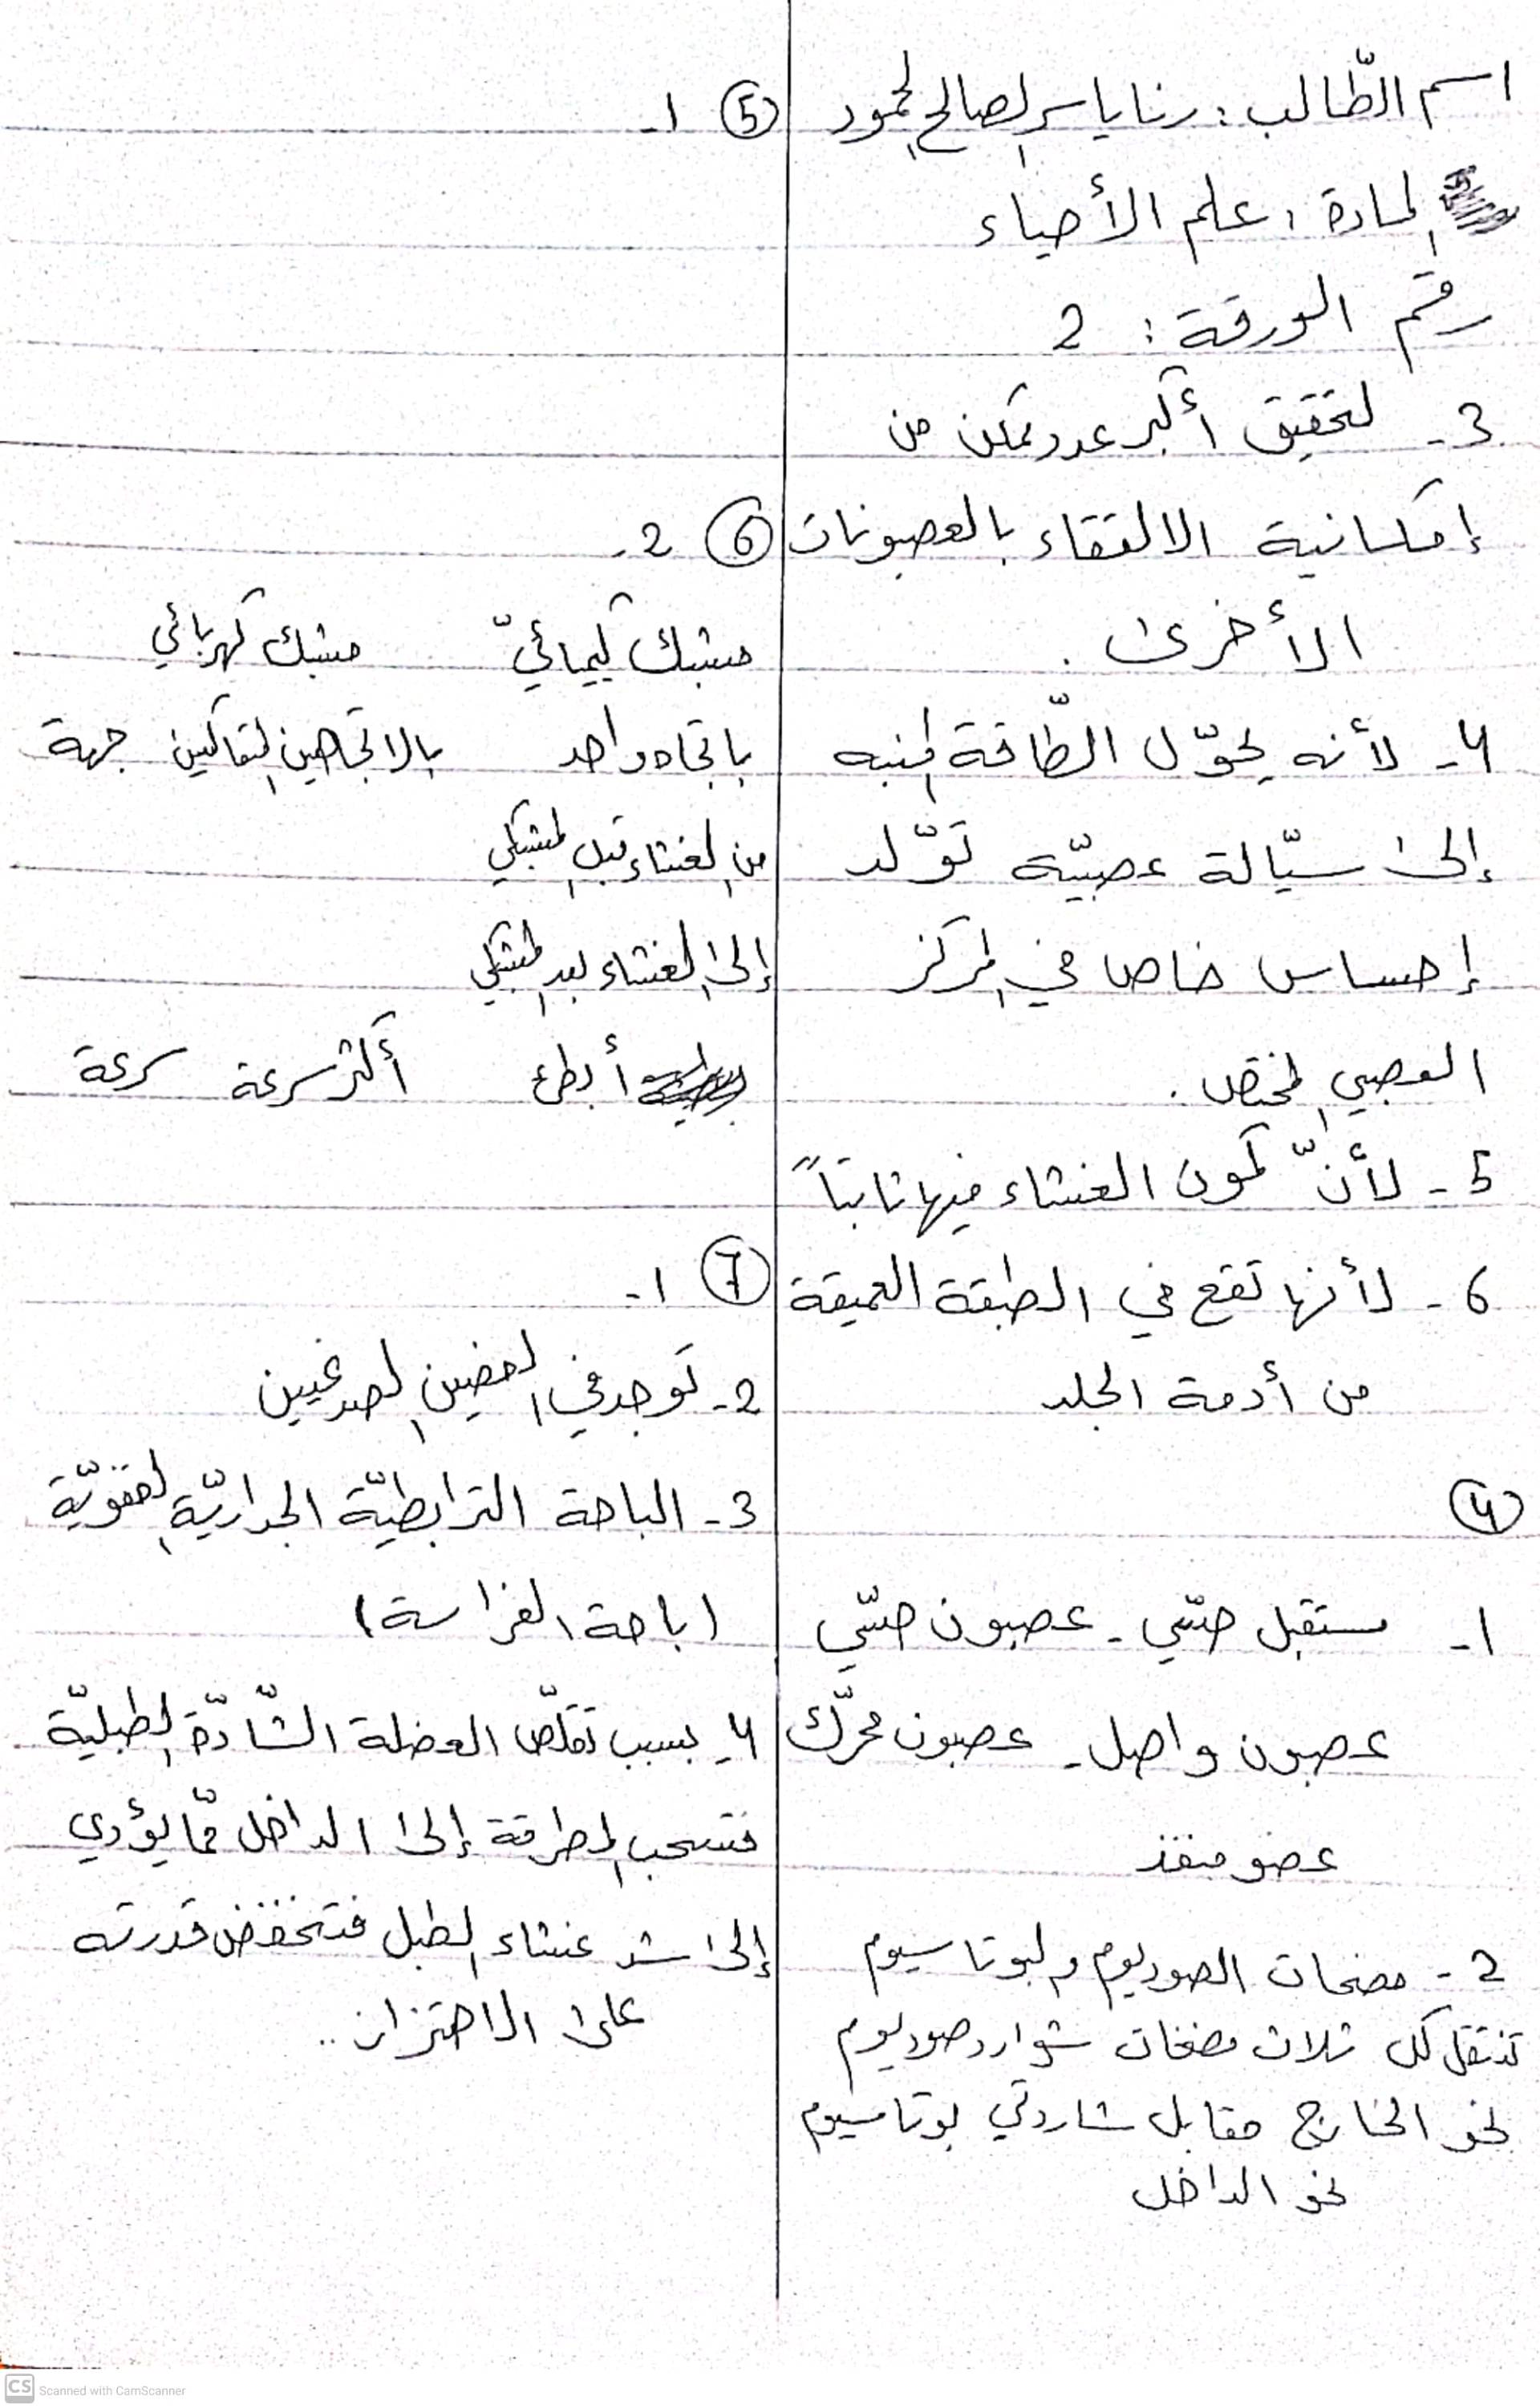 اسم الطّالب: رنا ياسر الصالح الحمود
المادة: علم الأحياء
رقم الورقة: 2
3- لتحقيق أكبر عدد ممكن من
إمكانية الالتقاء بالعصبونات
الأخرى.
4- لأنه يحوّل الطّاقة المنبه
إلى سيّالة عصبيّة تولّد
إحساس خاص في المركز
العصبي المختص.
5- لأنّ كمون الغشاء فيها ثابتاً
6- لأنها تقع في الطبقة العميقة
من أدمة الجلد
4
1- مستقبل حسّي - عصبون حسّي
عصبون واصل - عصبون محرّك
عضو منفذ
2- مضخات الصوديوم والبوتاسيوم
تنتقل كل ثلاث مضخات شوارد صوديوم
نحو الخارج مقابل شاردتي بوتاسيوم
نحو الداخل
5 1-
6 2-
مشبك كيميائيّ مشبك كهربائي
باتجاه واحد بالاتجاهين المتعاكسين جهة
من الغشاء قبل المشبكي
إلى الغشاء بعد المشبكي
أبطئ أكثر سرعة سرعة
7 1-
2- توجد في الفصين الصدغيين
3- الباحة الترابطيّة الجداريّة القفويّة
(باحة الفراسة)
4- بسبب تقلّص العضلة الشّادّة الطبليّة
فتسحب المطرقة إلى الداخل ممّا يؤدي
إلى شد غشاء الطبل فتنخفض قدرته
على الاهتزاز..
CS Scanned with CamScanner